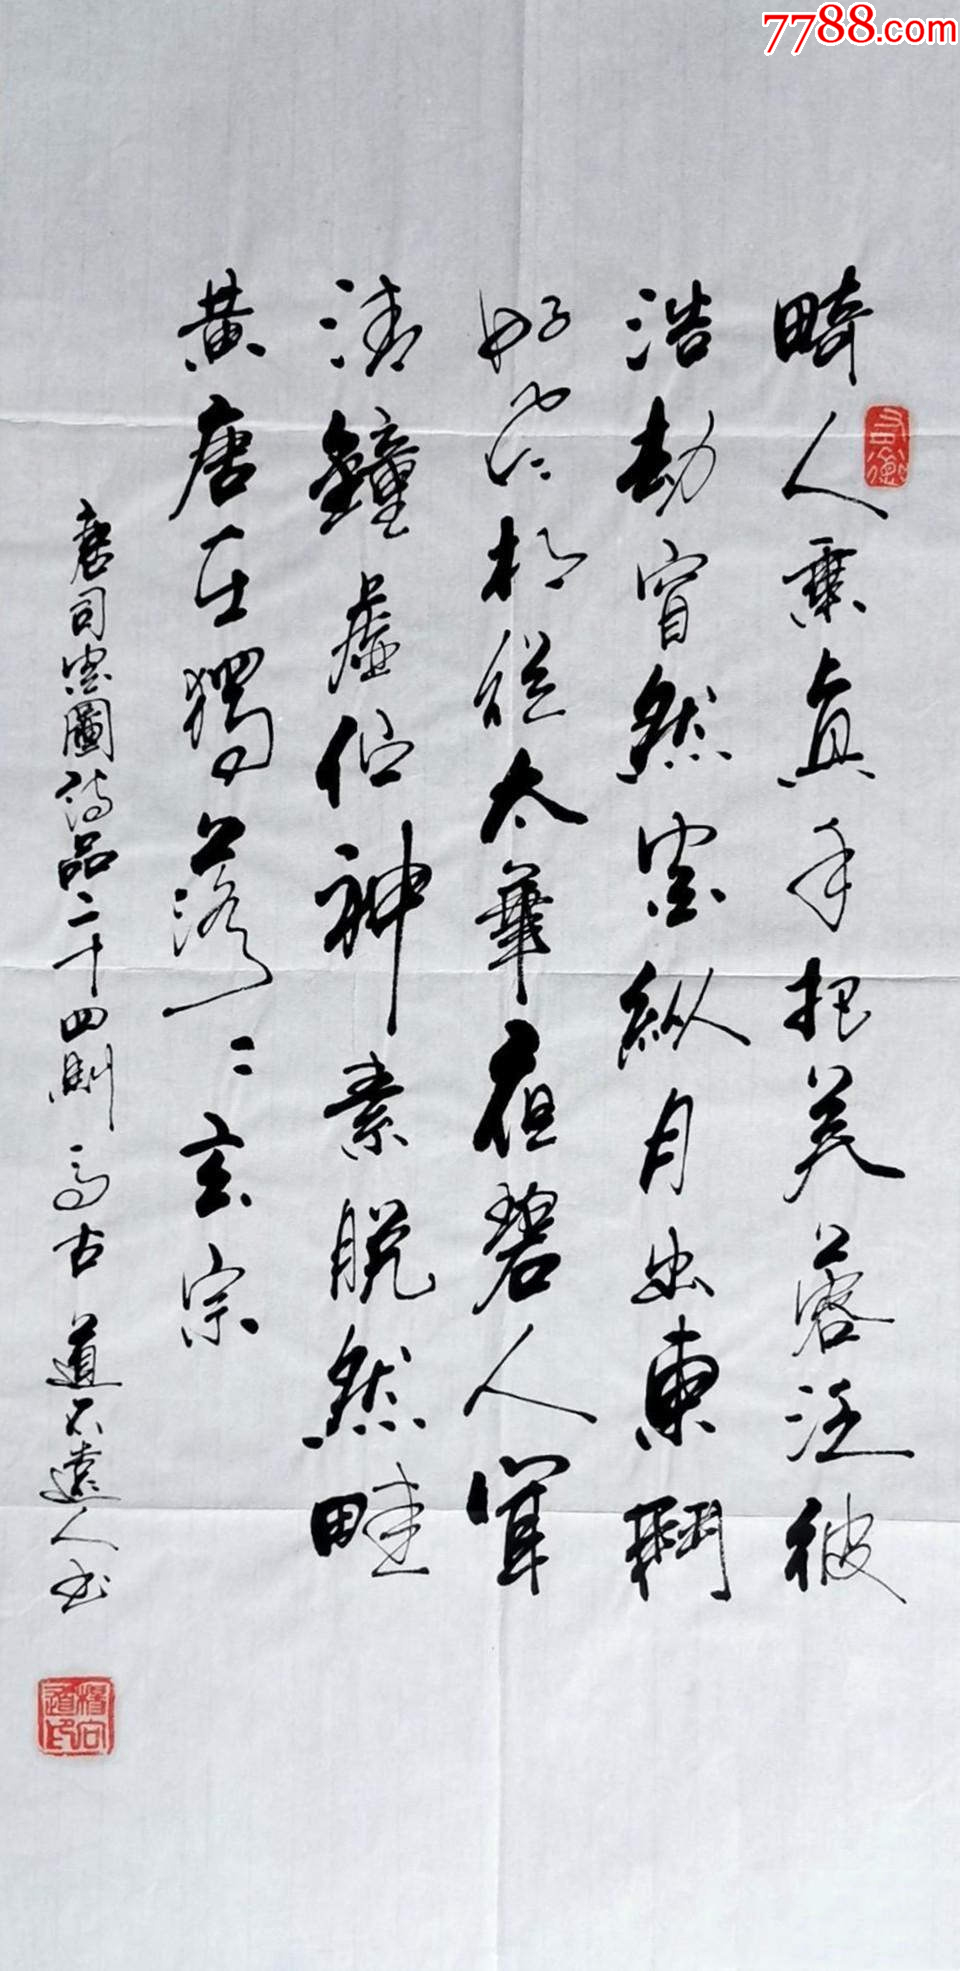 7788.com
畸人乘真手把芙蓉泛彼
浩劫窅然空縱月出東斗
好風相從太華夜碧人聞
清鐘虛佇神素脫然畦
黃唐在獨落二玄宗
唐司空圖詩品二十四則高古 道不遠人書
楊向道印